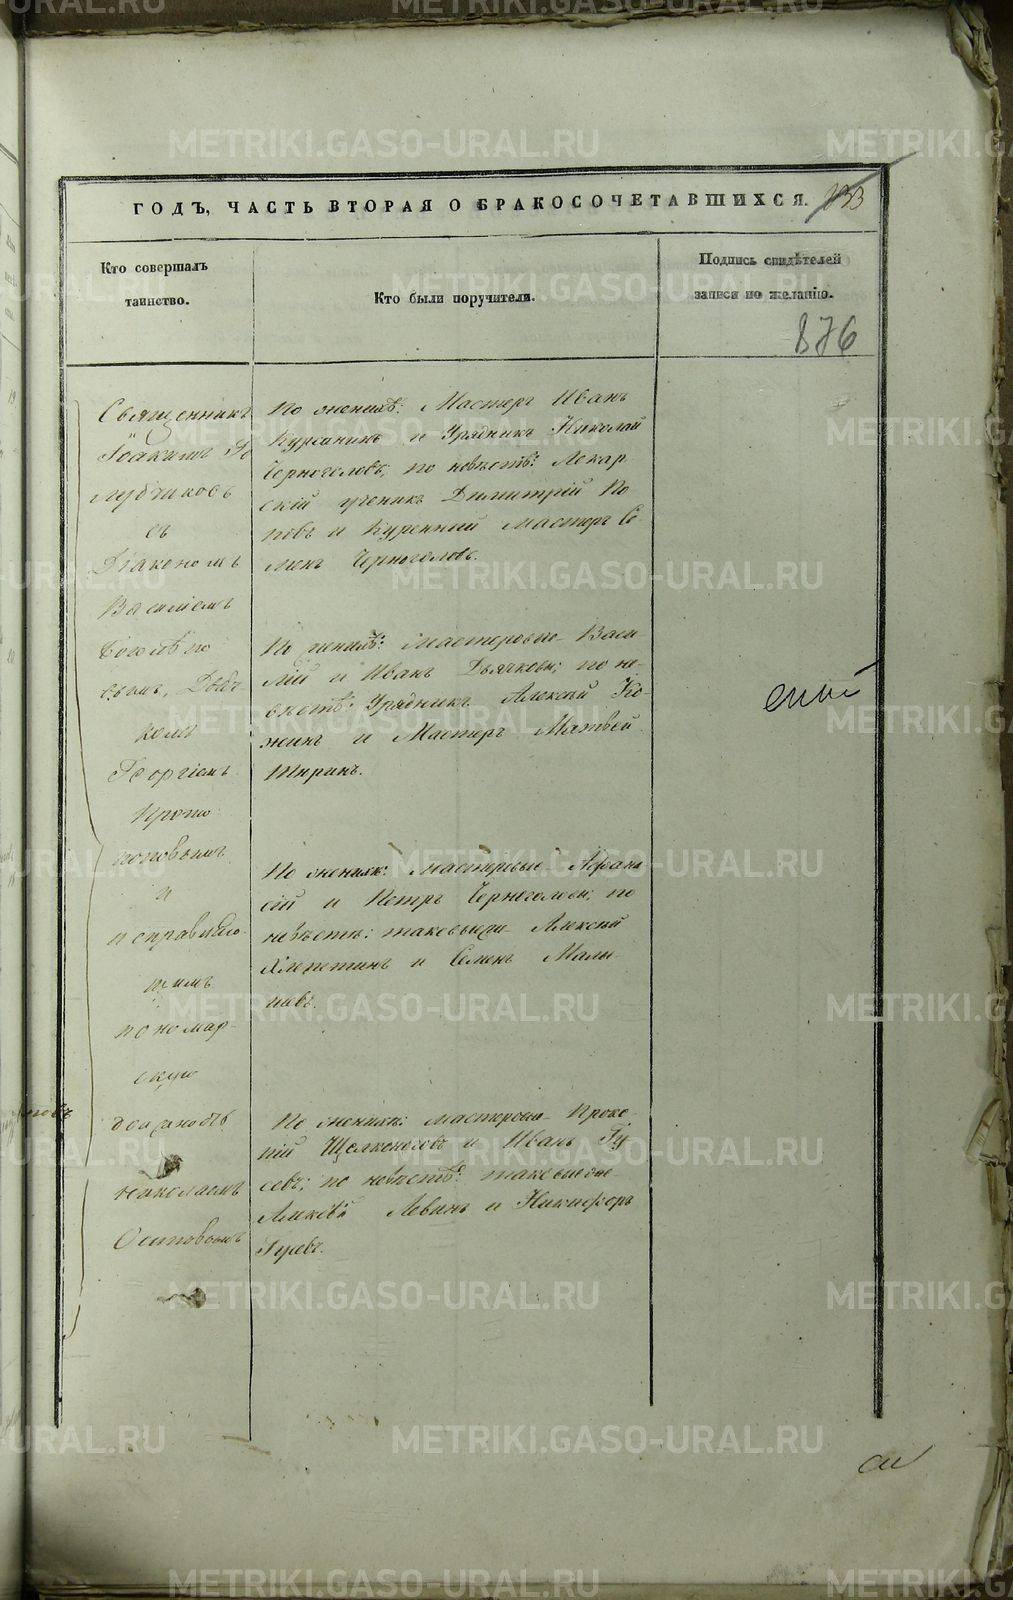 ГОДЪ, ЧАСТЬ ВТОРАЯ О БРАКОСОЧЕТАВШИХСЯ.
Кто совершалъ
таинство.
Кто были поручители.
Подпись свидѣтелей
записи по желанію.
876
Священникъ
Іоакимъ Го
лубчиковъ
съ
Діакономъ
Василіемъ
Боголѣпо
вымъ, Дьяч
комъ
Георгіемъ
Крото
поповымъ
и
исправляю
щимъ
пономар
скую
должность
Николаемъ
Осиповымъ
По женихѣ: Мастеръ Иванъ
и Урядникъ Николай
Черноголовъ, по невѣстѣ: Лекар
скій ученикъ Димитрій По
повъ и Куренный Мастеръ Се
менъ Черноголовъ.
По женихѣ: Мастеровые Васи
лій и Иванъ Дьячковы; по не
вѣстѣ: Урядникъ Алексѣй Ко
жинъ и Мастеръ Матвей
Ширинъ.
По женихѣ: мастеровые Афана
сій и Петръ Черноголовы; по
невѣстѣ: таковыеже Алексѣй
и Семенъ Малы
По женихѣ: мастеровые Проко
пій Щелконоговъ и Иванъ Гу
севъ; по невѣстѣ: таковыеже
Алексѣй Левинъ и Никифоръ
Гусевъ.
METRIKI.GASO-URAL.RU